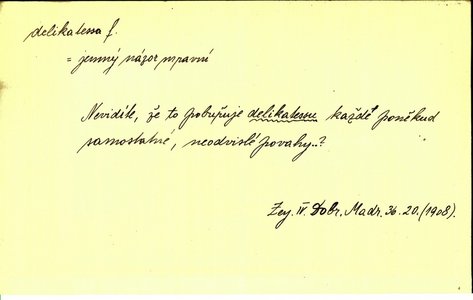 delikatessa f.
= jemný názor mravní
Nevidíte, že to pobuřuje delikatessu každé poněkud
samostatné, neodvislé povahy..?
Zey. IV. Dobr. Madr. 36. 20. (1908).